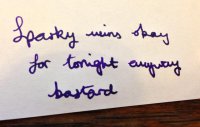 Sparky wins okay
for tonight anyway
bastard